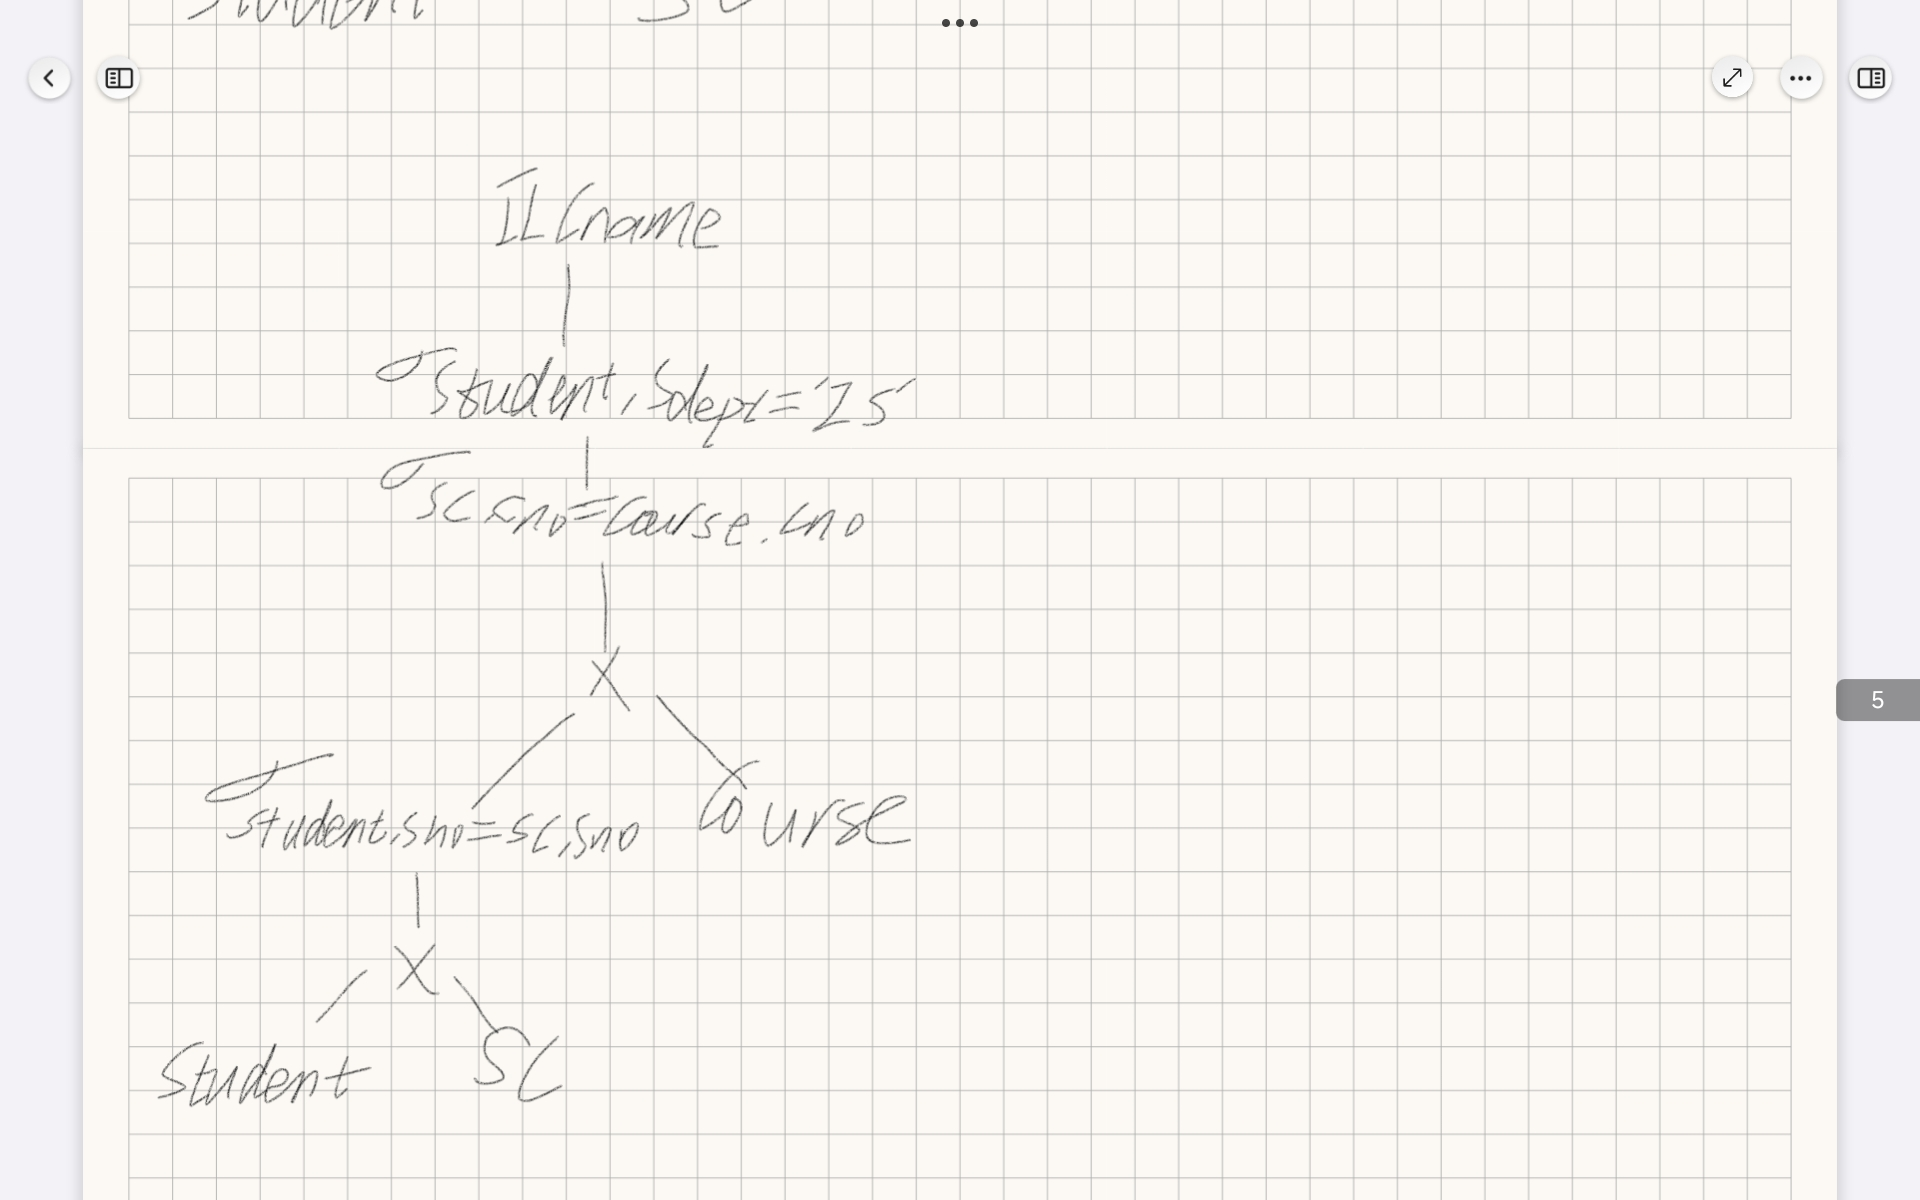 Student SC
ΠCname
σStudent.Sdept='IS'
σSC.cno=Course.cno
X
σstudent.sno=SC.sno Course
X
Student SC
5